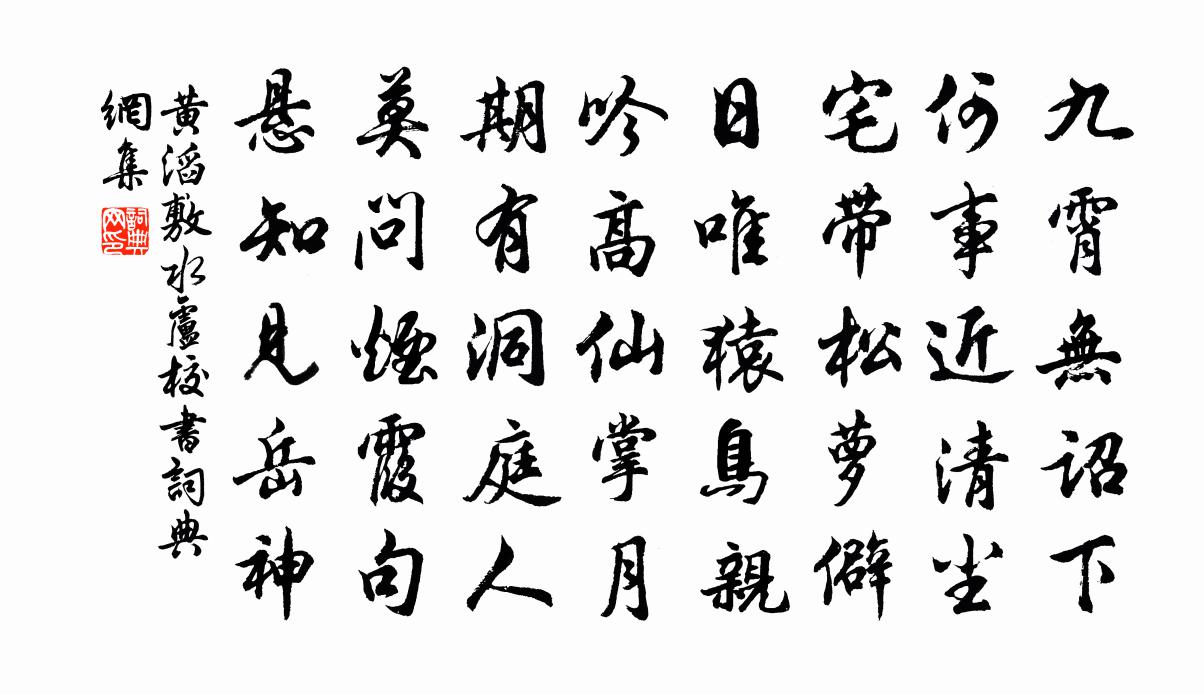 九霄無詔下
何事近清尘
宅带松萝僻
日唯猿鳥親
吟高仙掌月
期有洞庭人
莫问煙霞句
悬知见岳神
黄滔敷水盧校書詞典
網集
詞典
网印